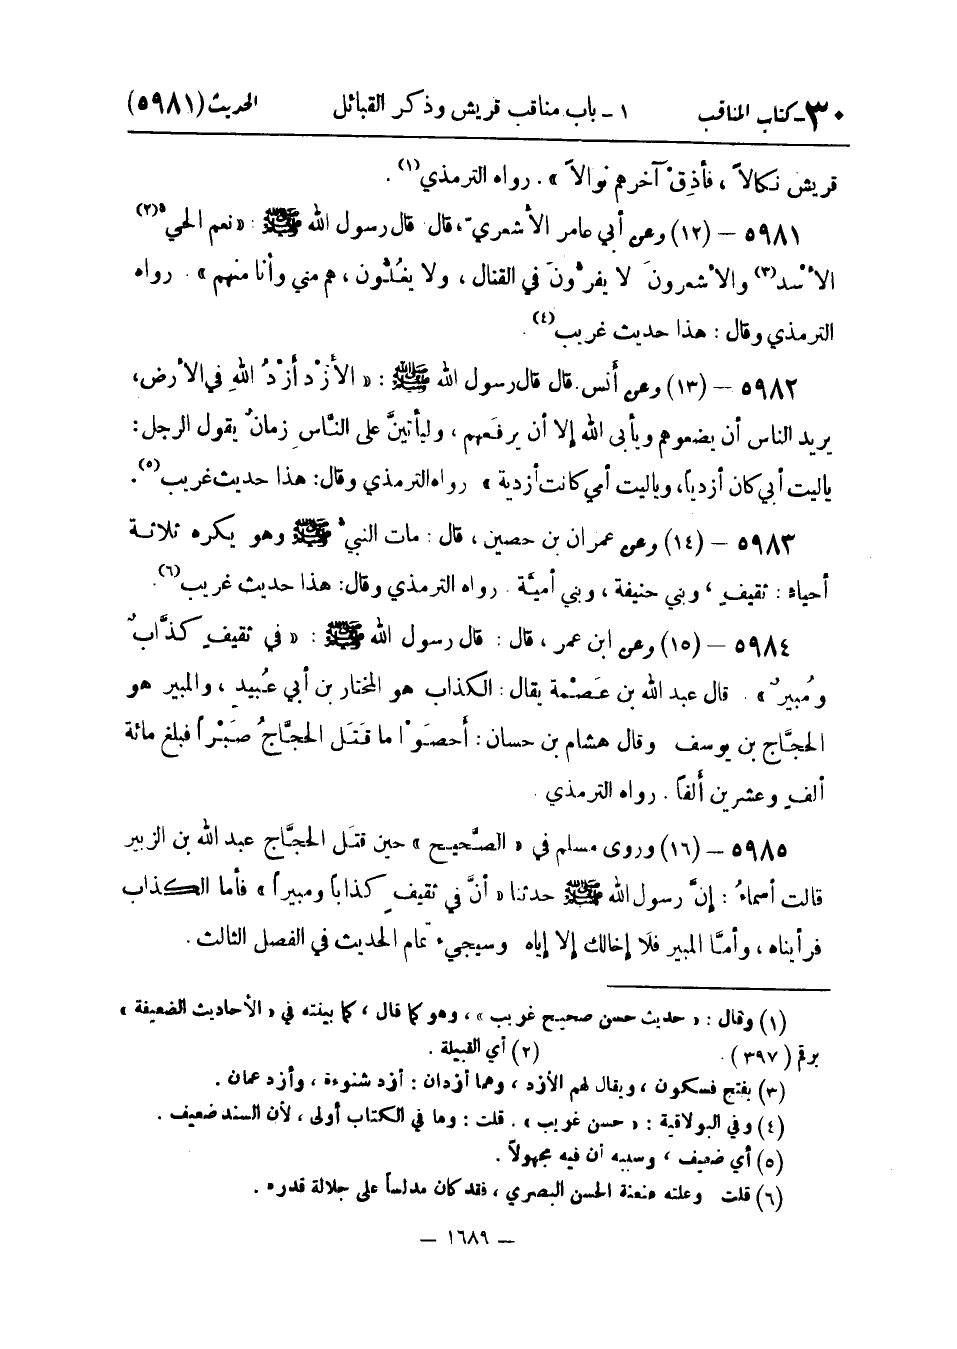 ٣٠ـ كتاب المناقب ١ ـ باب مناقب قريش وذكر القبائل الحديث (٥٩٨١)
قريش نكالاً ، فأذِقْ آخرهم نوالاً » . رواه الترمذي(١) .
٥٩٨١ – (١٢) وعن أبي عامر الأشعريّ ، قال قال رسول الله ﷺ : «نعم الحيُّ(٢)
الأسْد(٣) والأشعرونَ لا يفرُّونَ في القتال ، ولا يغُلُّون ، هم مني وأنا منهم» . رواه
الترمذي وقال : هذا حديث غريب(٤) .
٥٩٨٢ – (١٣) وعن أنس قال قال رسول الله ﷺ : « الأزْد أزْدُ اللهِ في الأرض ،
يريد الناس أن يضعوهم ويأبى الله إلا أن يرفَعهم ، وليأتينَّ على النَّاسِ زمانٌ يقول الرجل :
ياليت أبي كان أزدياً ، وياليت أمي كانت أزدية » رواه الترمذي وقال : هذا حديث غريب(٥) .
٥٩٨٣ – (١٤) وعن عمران بن حصين ، قال : مات النبيُّ ﷺ وهو يكره ثلاثة
أحياء : ثقيفٍ ، وبني حنيفة ، وبني أميَّة . رواه الترمذي وقال : هذا حديث غريب(٦) .
٥٩٨٤ – (١٥) وعن ابن عمر ، قال : قال رسول الله ﷺ : « في ثقيفٍ كذَّابٌ
ومُبيرٌ » . قال عبد الله بن عصْمة يقال : الكذاب هو المختار بن أبي عُبيد ، والمبير هو
الحجَّاج بن يوسف وقال هشام بن حسان : أحصَوْا ما قتَل الحجاجُ صَبْراً فبلغ مائة
ألفٍ وعشرين ألفاً . رواه الترمذي .
٥٩٨٥ – (١٦) وروى مسلم في « الصَّحيح » حين قتَل الحجَّاج عبد الله بن الزبير
قالت أسماءُ : إنَّ رسول الله ﷺ حدثنا « أنَّ في ثقيفٍ كذاباً ومبيراً » فأما الكذاب
فرأيناه ، وأمَّا المبير فلَا إخالك إلا إياه وسيجيء تمام الحديث في الفصل الثالث .
(١) وقال : « حديث حسن صحيح غريب » ، وهو كما قال ، كما بينته في « الأحاديث الضعيفة »
برقم (٣٩٧) . (٢) أي القبيلة .
(٣) بفتح فسكون ، ويقال لهم الأزد ، وهما أزدان : أزد شنوءة ، وأزد عمان .
(٤) وفي البولاقية : « حسن غريب » . قلت : وما في الكتاب أولى ، لأن السند ضعيف .
(٥) أي ضعيف ، وسببه أن فيه مجهولاً .
(٦) قلت وعلته عنعنة الحسن البصري ، فقد كان مدلساً على جلالة قدره .
— ١٦٨٩ —